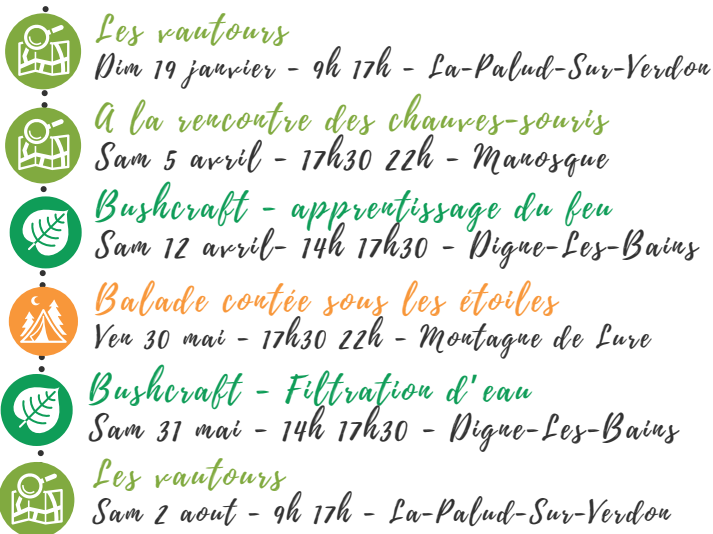 Les vautours
Dim 19 janvier - 9h 17h - La-Palud-Sur-Verdon
A la rencontre des chauves-souris
Sam 5 avril - 17h30 22h - Manosque
Bushcraft - apprentissage du feu
Sam 12 avril- 14h 17h30 - Digne-Les-Bains
Balade contée sous les étoiles
Ven 30 mai - 17h30 22h - Montagne de Lure
Bushcraft - Filtration d'eau
Sam 31 mai - 14h 17h30 - Digne-Les-Bains
Les vautours
Sam 2 aout - 9h 17h - La-Palud-Sur-Verdon